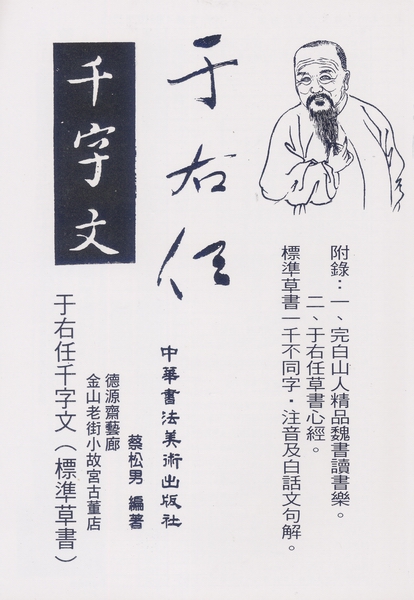 附錄：一、完白山人精品魏書讀書樂。
二、于右任草書心經。
標準草書一千不同字・注音及白話文句解。
于右任
中華書法美術出版社
蔡松男 編著
德源齋藝廊
金山老街小故宮古董店
千字文
于右任千字文（標準草書）